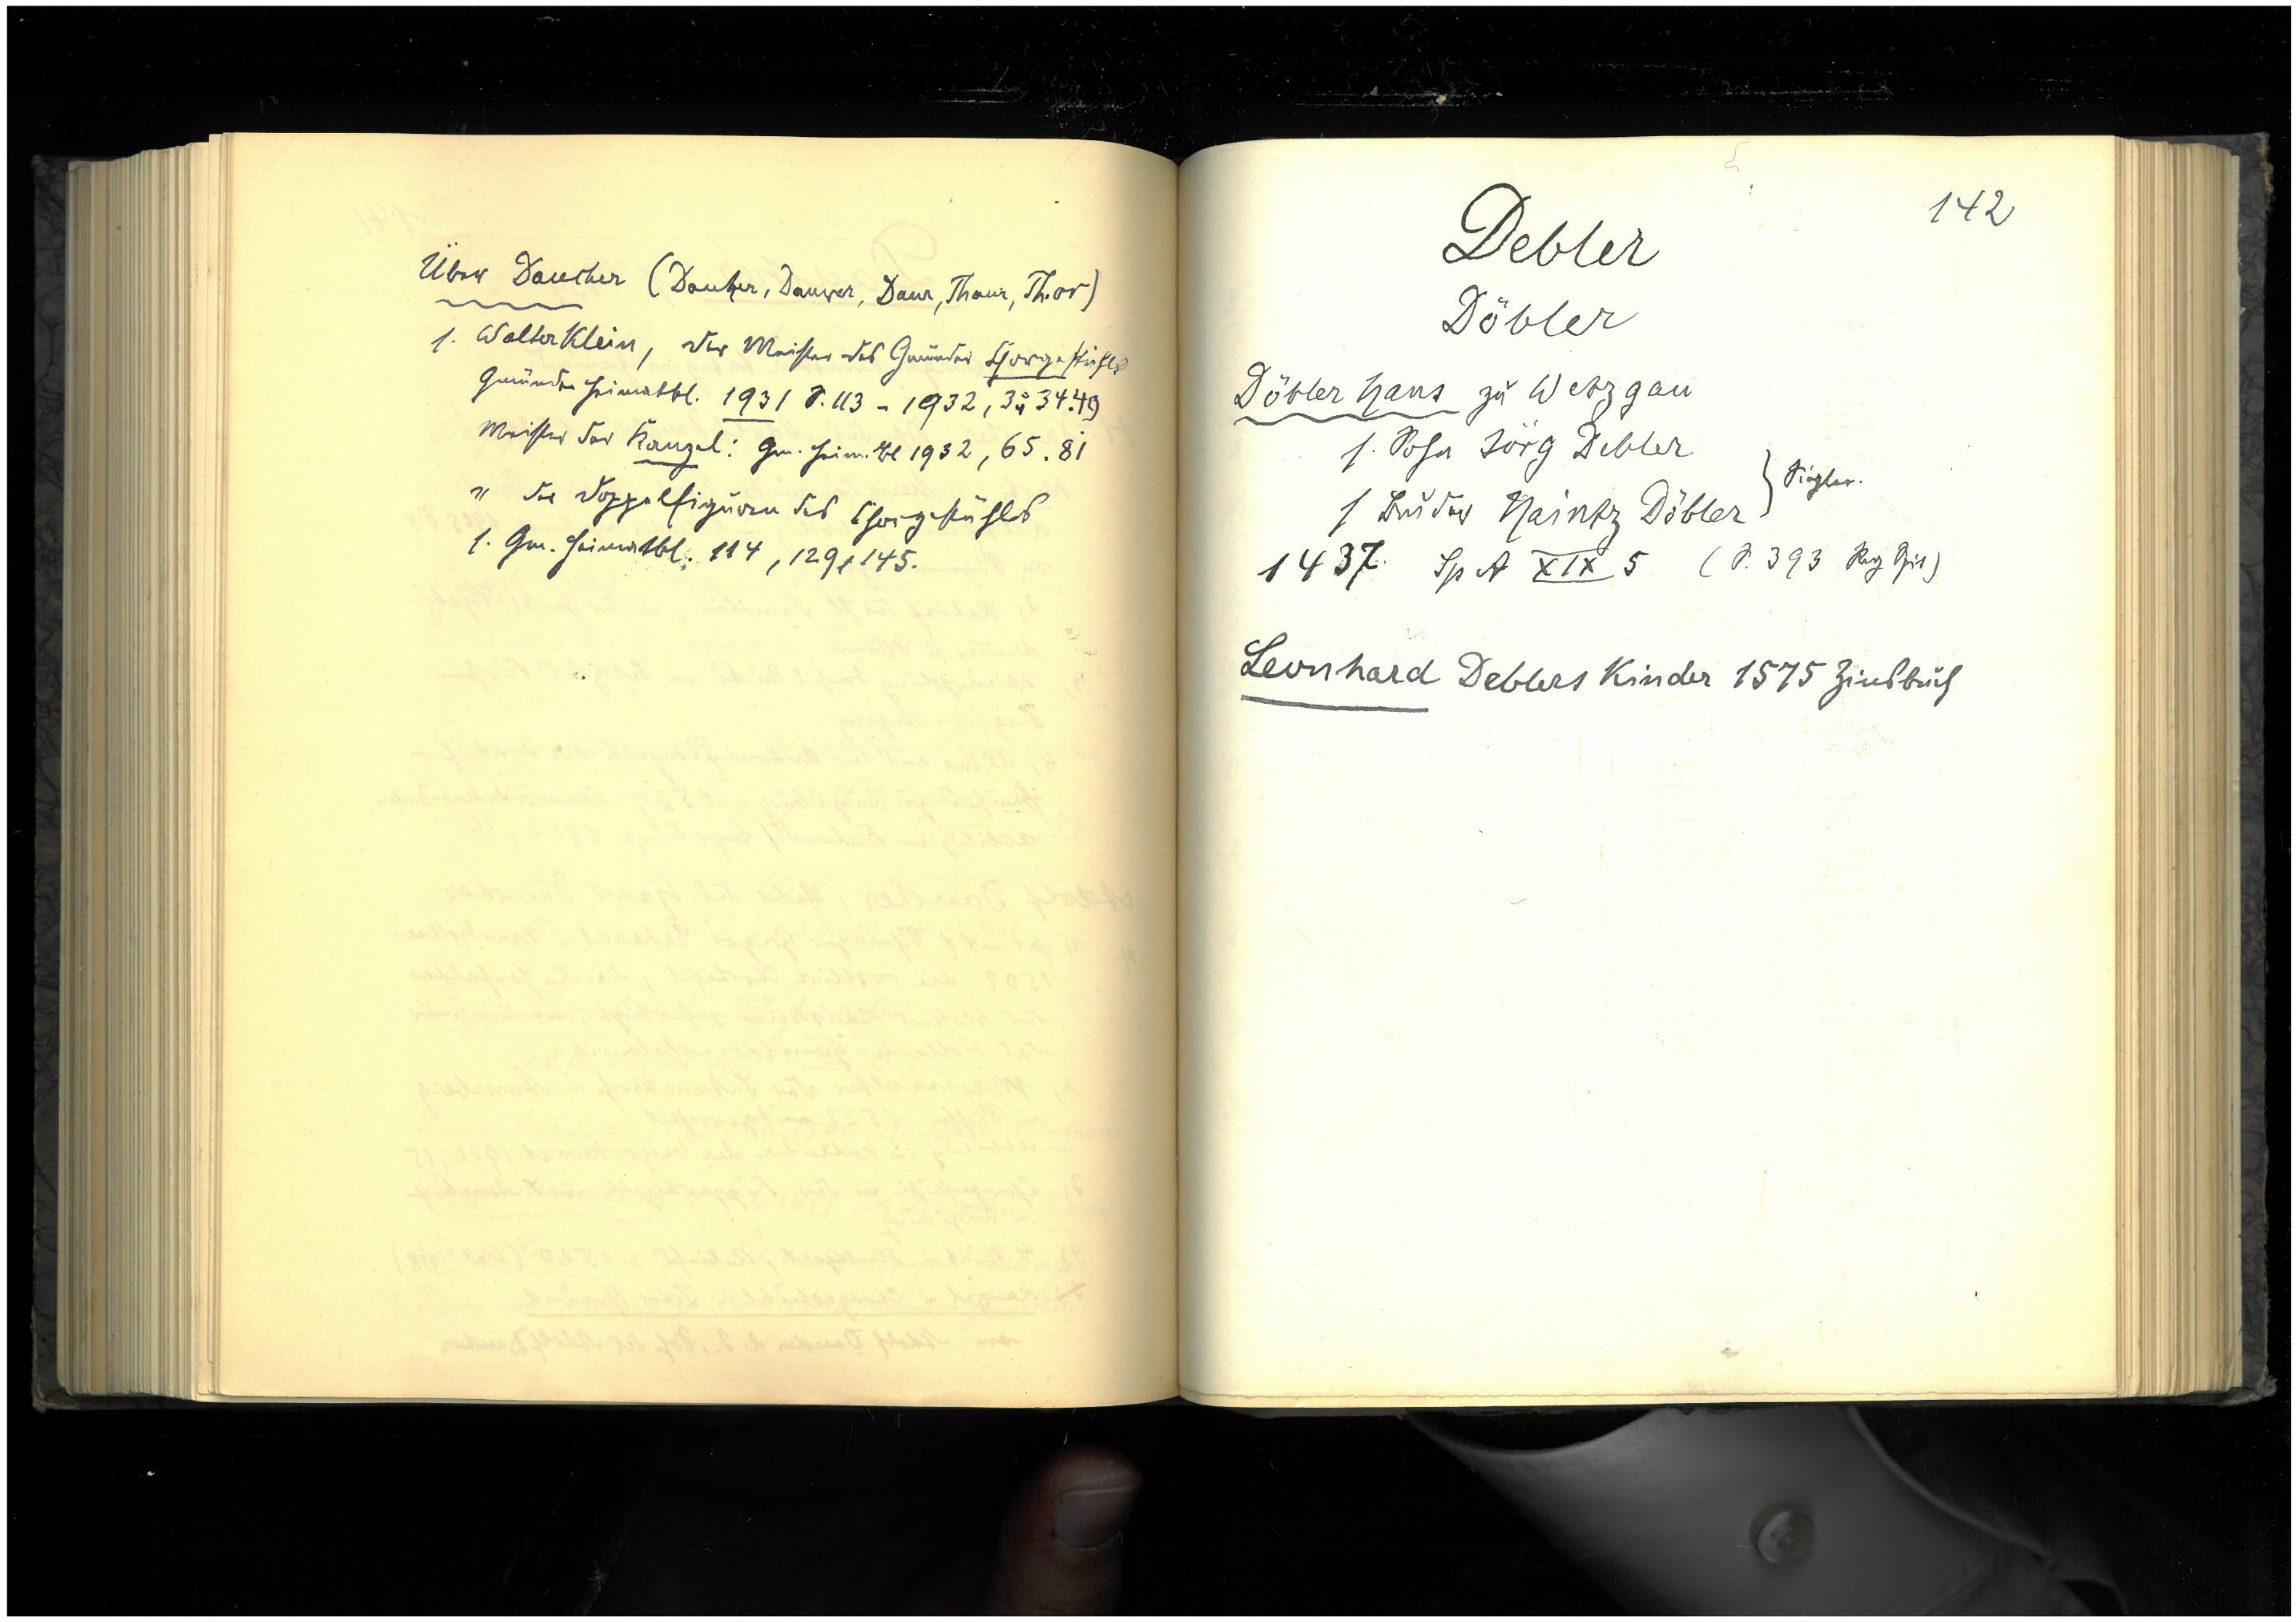 Über Daucher (Dauher, Dauwer, Daur, Thaur, Thor)
s. Walter Klein, der Meister des Gmünder Chorgestühls
Gmünder Heimatbl. 1931 S. 113 - 1932, 34.49
Meister der Kanzel: Gm. Heim.bl 1932, 65. 81
" der Doppelfiguren des Chorgestühls
s. Gm. Heimatbl. 114, 129, 145.
142
Debler
Döbler
Döbler Hans zu Wetzgau
s. Sohn Jörg Debler
s Bruder Haintz Döbler } Siegler.
1437. Sp A XIX 5 (S. 393 Reg Spit)
Leonhard Deblers Kinder 1575 Zinsbuch